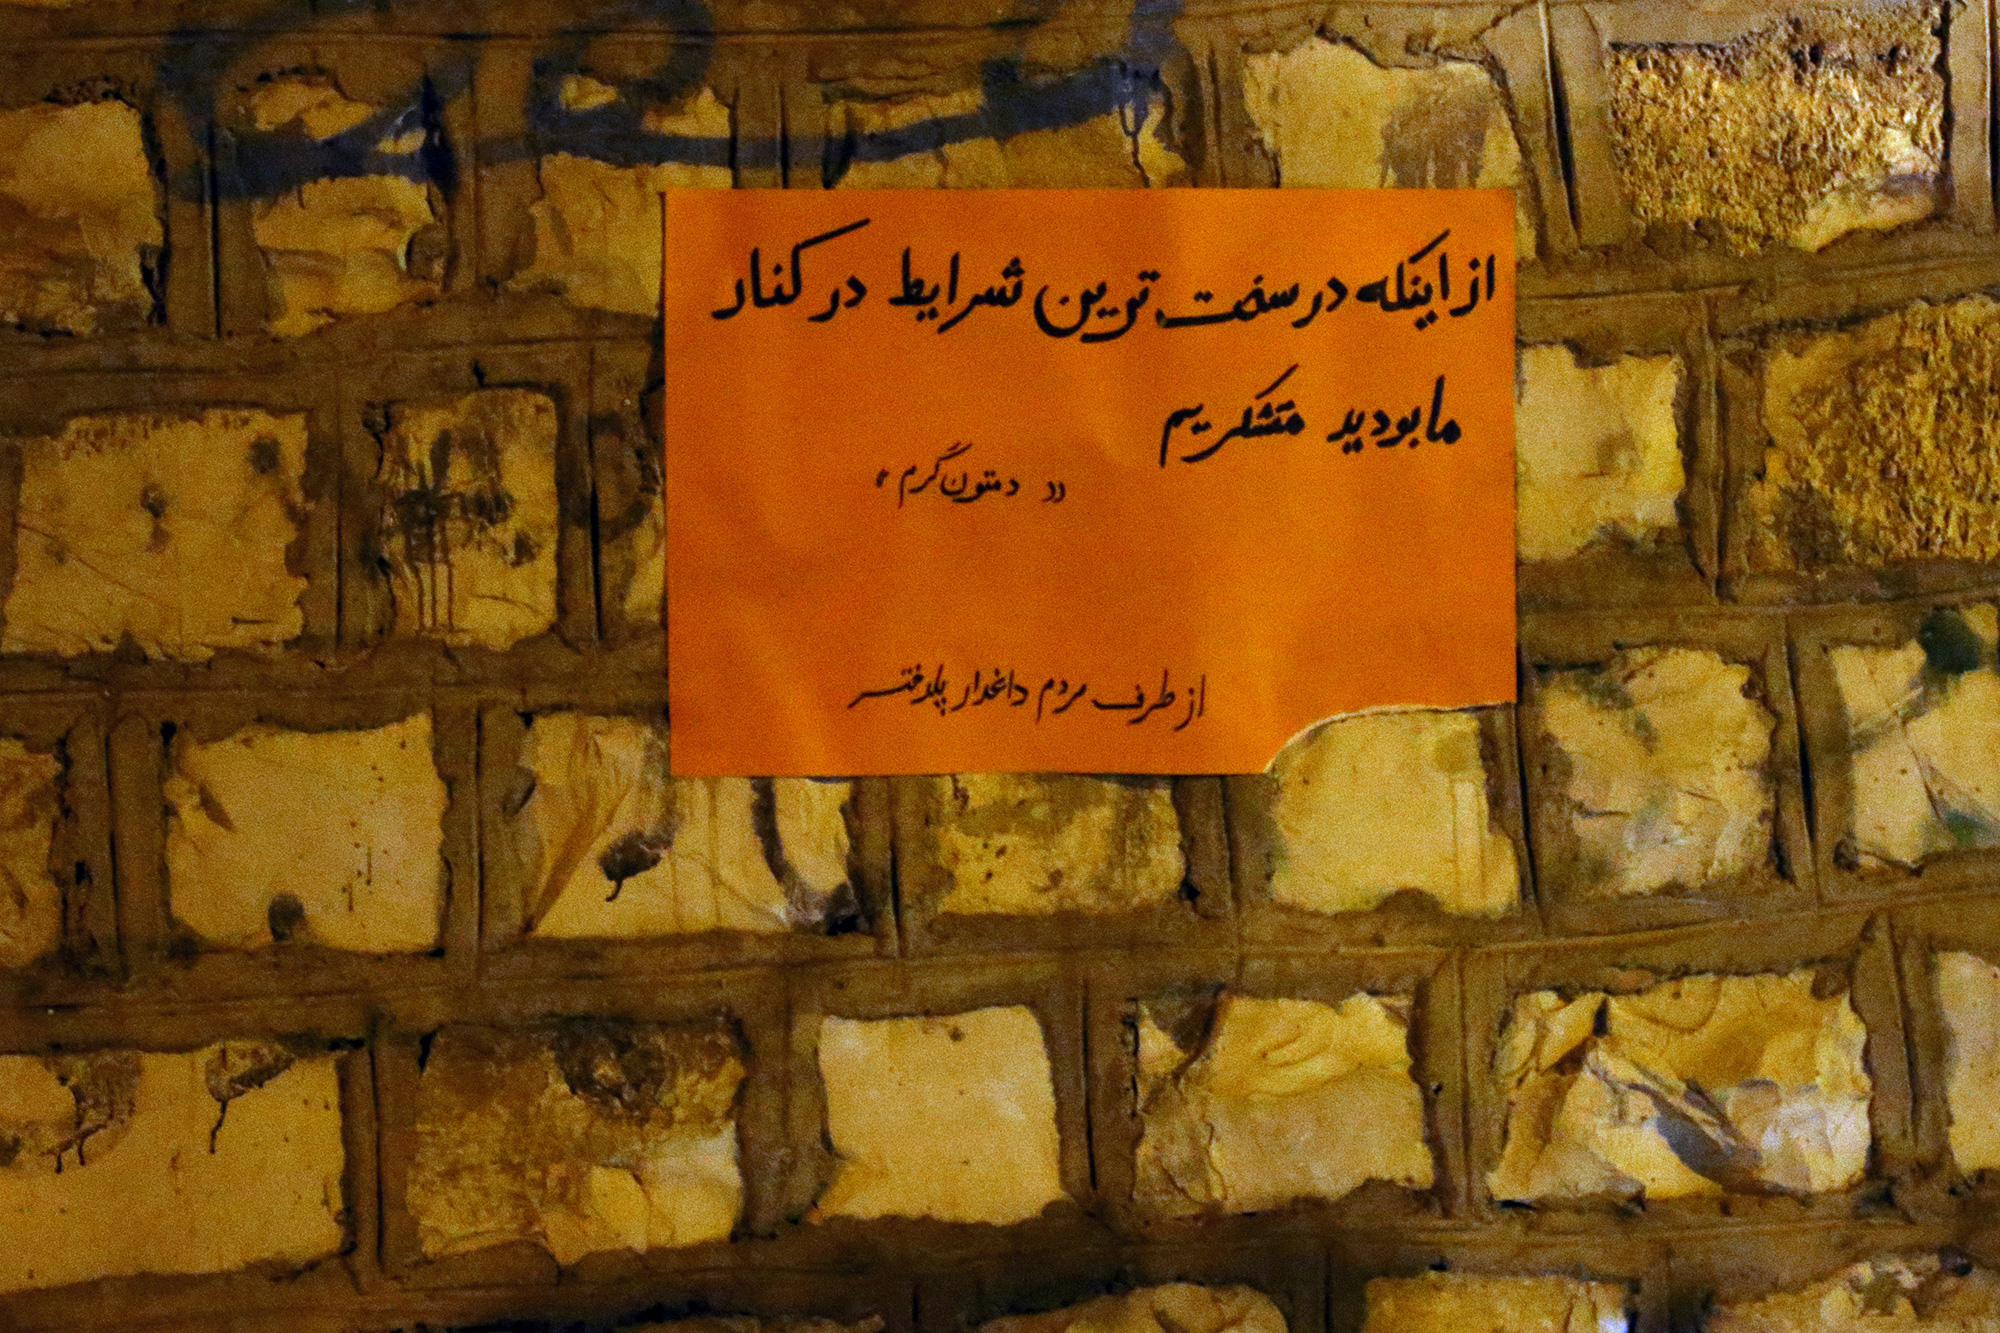 از اینکه در سخت ترین شرایط در کنار
ما بودید متشکریم
«دمتون گرم»
از طرف مردم داغدار پلدختر